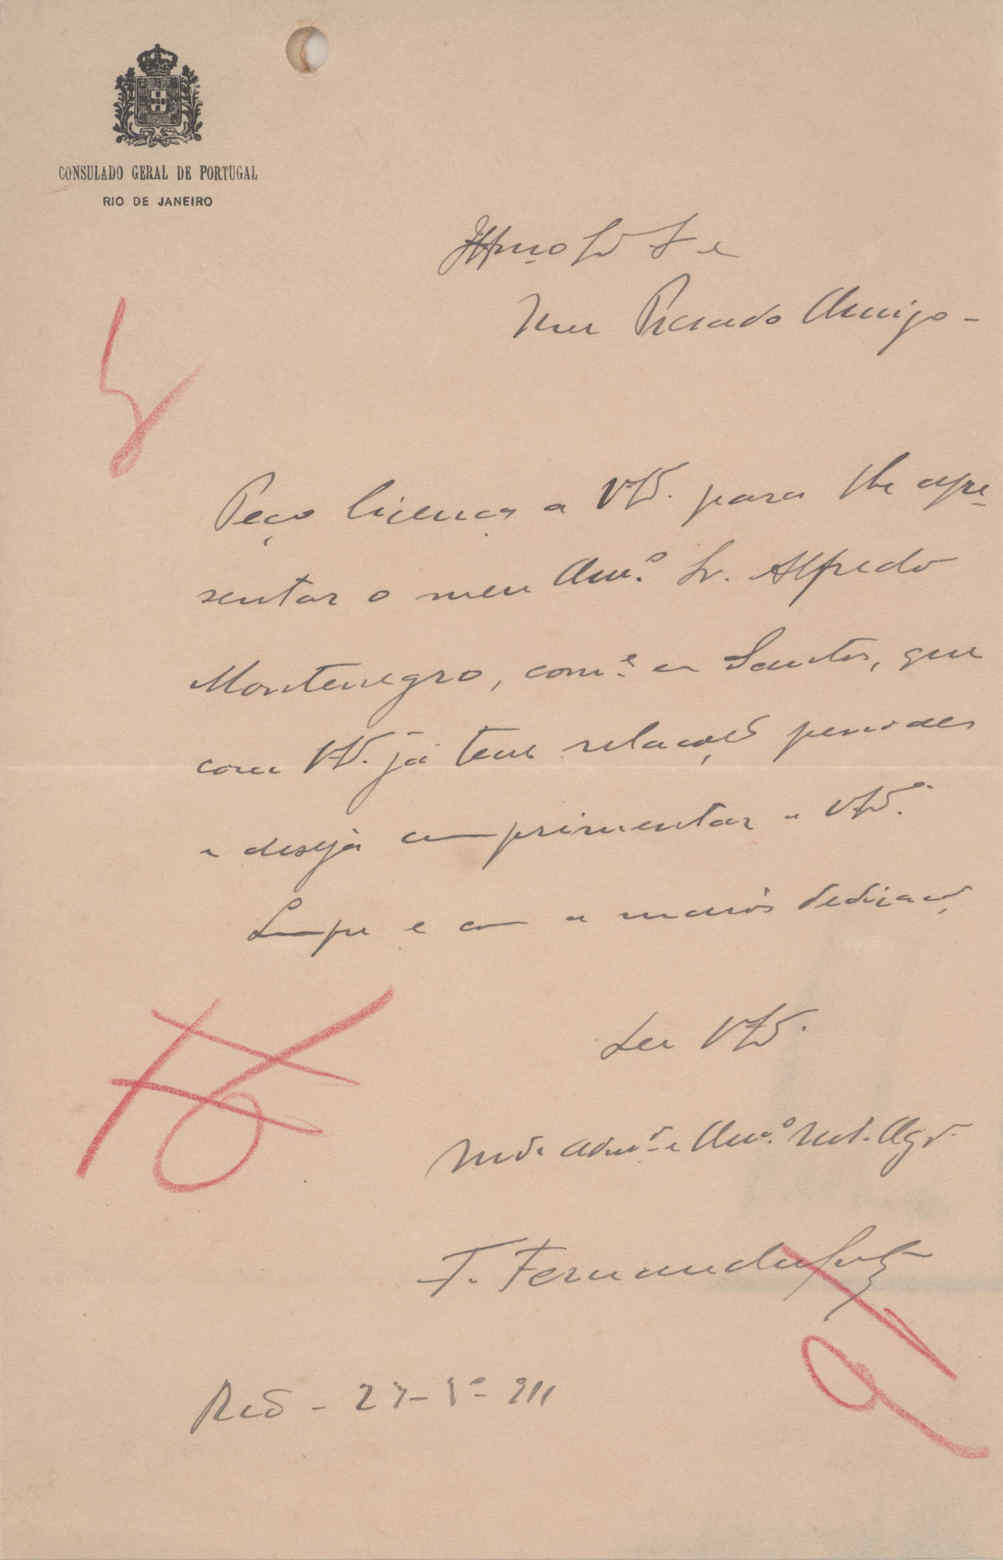 CONSULADO GERAL DE PORTUGAL
RIO DE JANEIRO
Illmo Sr
Meu Presado Amigo -
Peço licença a VEª. para lhe apre-
sentar o meu Amº. Sr. Alfredo
Montenegro, com.e em Santos, que
com VEª. já tem relações
e deseja cumprimentar a VEª.
Sempre e com a maior dedicação,
Seu VEª.
Amº.
F. Fernandes
Rio - 27 - 1º - 911